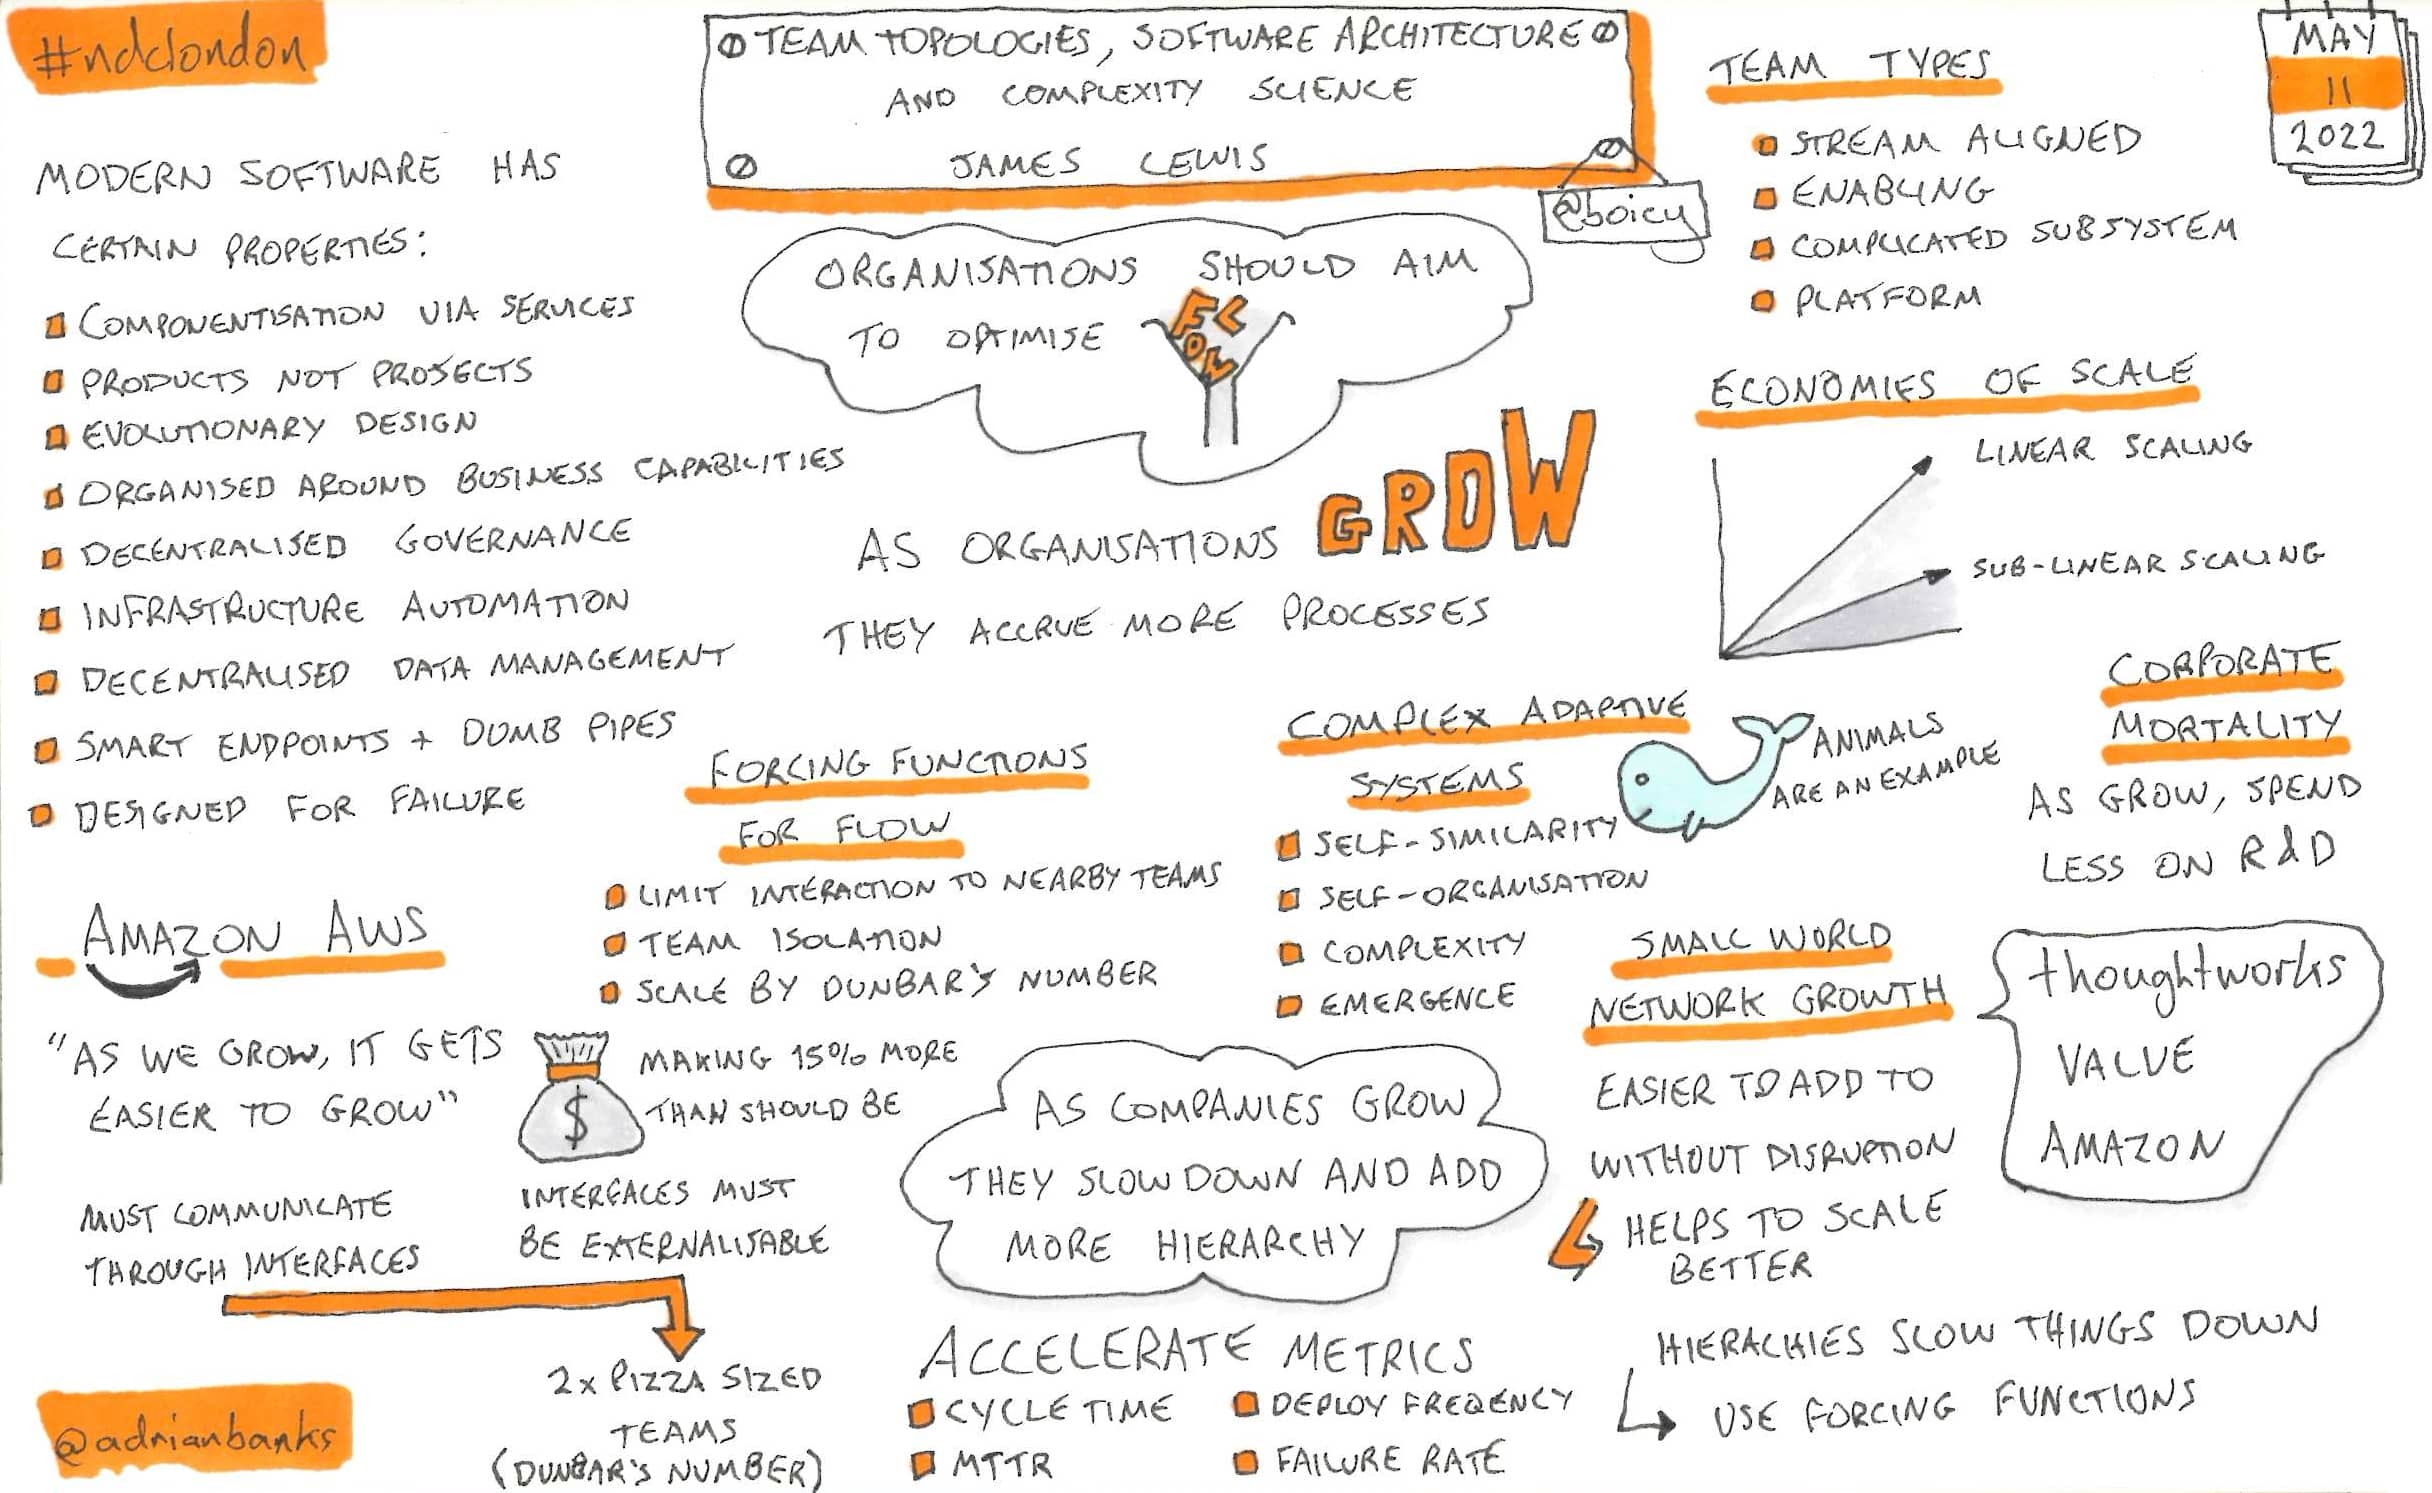 #ndclondon
TEAM TOPOLOGIES, SOFTWARE ARCHITECTURE
AND COMPLEXITY SCIENCE
JAMES LEWIS
@boicy
MAY
11
2022
MODERN SOFTWARE HAS
CERTAIN PROPERTIES:
COMPONENTISATION VIA SERVICES
PRODUCTS NOT PROJECTS
EVOLUTIONARY DESIGN
ORGANISED AROUND BUSINESS CAPABILITIES
DECENTRALISED GOVERNANCE
INFRASTRUCTURE AUTOMATION
DECENTRALISED DATA MANAGEMENT
SMART ENDPOINTS + DUMB PIPES
DESIGNED FOR FAILURE
ORGANISATIONS SHOULD AIM
TO OPTIMISE
FLOW
AS ORGANISATIONS GROW
THEY ACCRUE MORE PROCESSES
TEAM TYPES
STREAM ALIGNED
ENABLING
COMPLICATED SUBSYSTEM
PLATFORM
ECONOMIES OF SCALE
LINEAR SCALING
SUB-LINEAR SCALING
FORCING FUNCTIONS
FOR FLOW
LIMIT INTERACTION TO NEARBY TEAMS
TEAM ISOLATION
SCALE BY DUNBAR'S NUMBER
COMPLEX ADAPTIVE
SYSTEMS
SELF-SIMILARITY
SELF-ORGANISATION
COMPLEXITY
EMERGENCE
ANIMALS
ARE AN EXAMPLE
CORPORATE
MORTALITY
AS GROW, SPEND
LESS ON R&D
AMAZON AWS
"AS WE GROW, IT GETS
EASIER TO GROW"
$
MAKING 15% MORE
THAN SHOULD BE
MUST COMMUNICATE
THROUGH INTERFACES
INTERFACES MUST
BE EXTERNALISABLE
2x PIZZA SIZED
TEAMS
(DUNBAR'S NUMBER)
AS COMPANIES GROW
THEY SLOW DOWN AND ADD
MORE HIERARCHY
SMALL WORLD
NETWORK GROWTH
EASIER TO ADD TO
WITHOUT DISRUPTION
HELPS TO SCALE
BETTER
thoughtworks
VALUE
AMAZON
HIERACHIES SLOW THINGS DOWN
USE FORCING FUNCTIONS
ACCELERATE METRICS
CYCLE TIME
MTTR
DEPLOY FREQENCY
FAILURE RATE
@adrianbanks